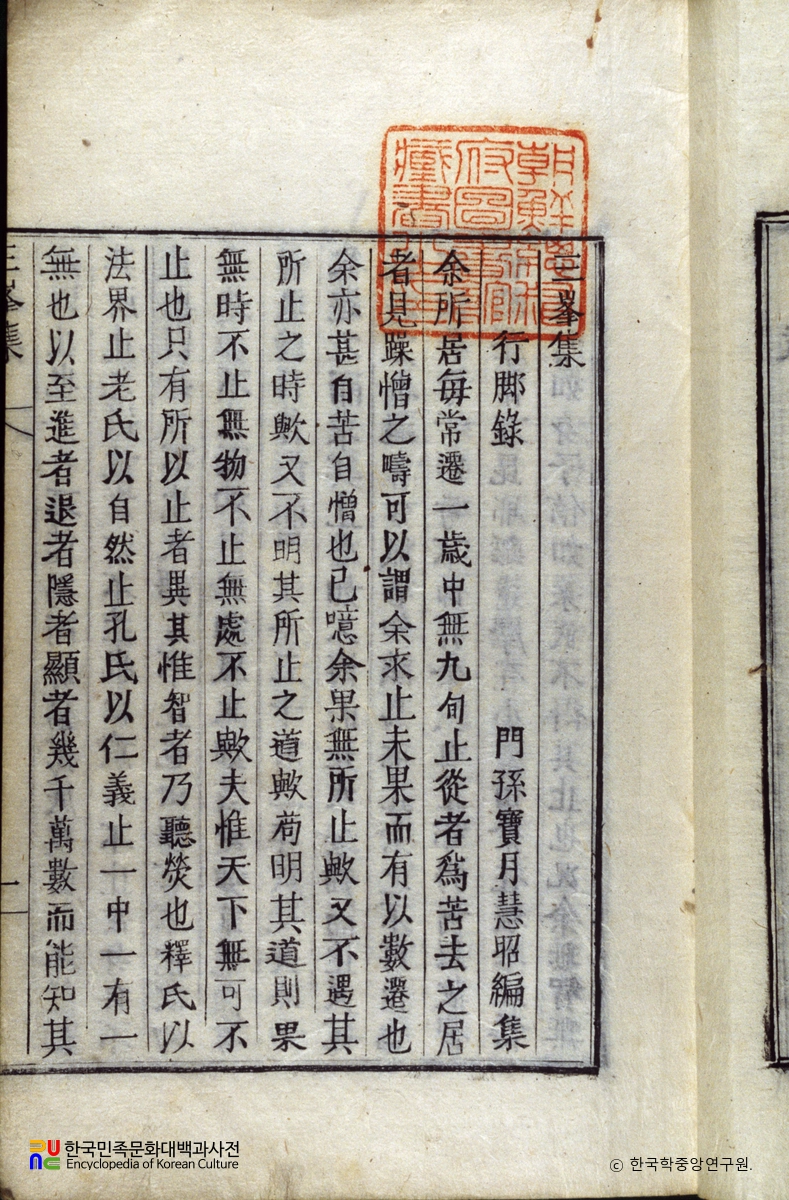 三峯集
行脚錄 門孫寶月慧昭編集
余所居每常遷一歲中無九旬止從者爲苦去之居
者見躁憎之疇可以謂余求止未果而有以數遷也
余亦甚自苦自憎也已噫余果無所止歟又不遇其
所止之時歟又不明其所止之道歟苟明其道則果
無時不止無物不止無處不止歟夫惟天下無可不
止也只有所以止者異其惟智者乃聽熒也釋氏以
法界止老氏以自然止孔氏以仁義止一中一有一
無也以至進者退者隱者顯者幾千萬數而能知其
三峯集
一
한국민족문화대백과사전
Encyclopedia of Korean Culture
ⓒ 한국학중앙연구원.